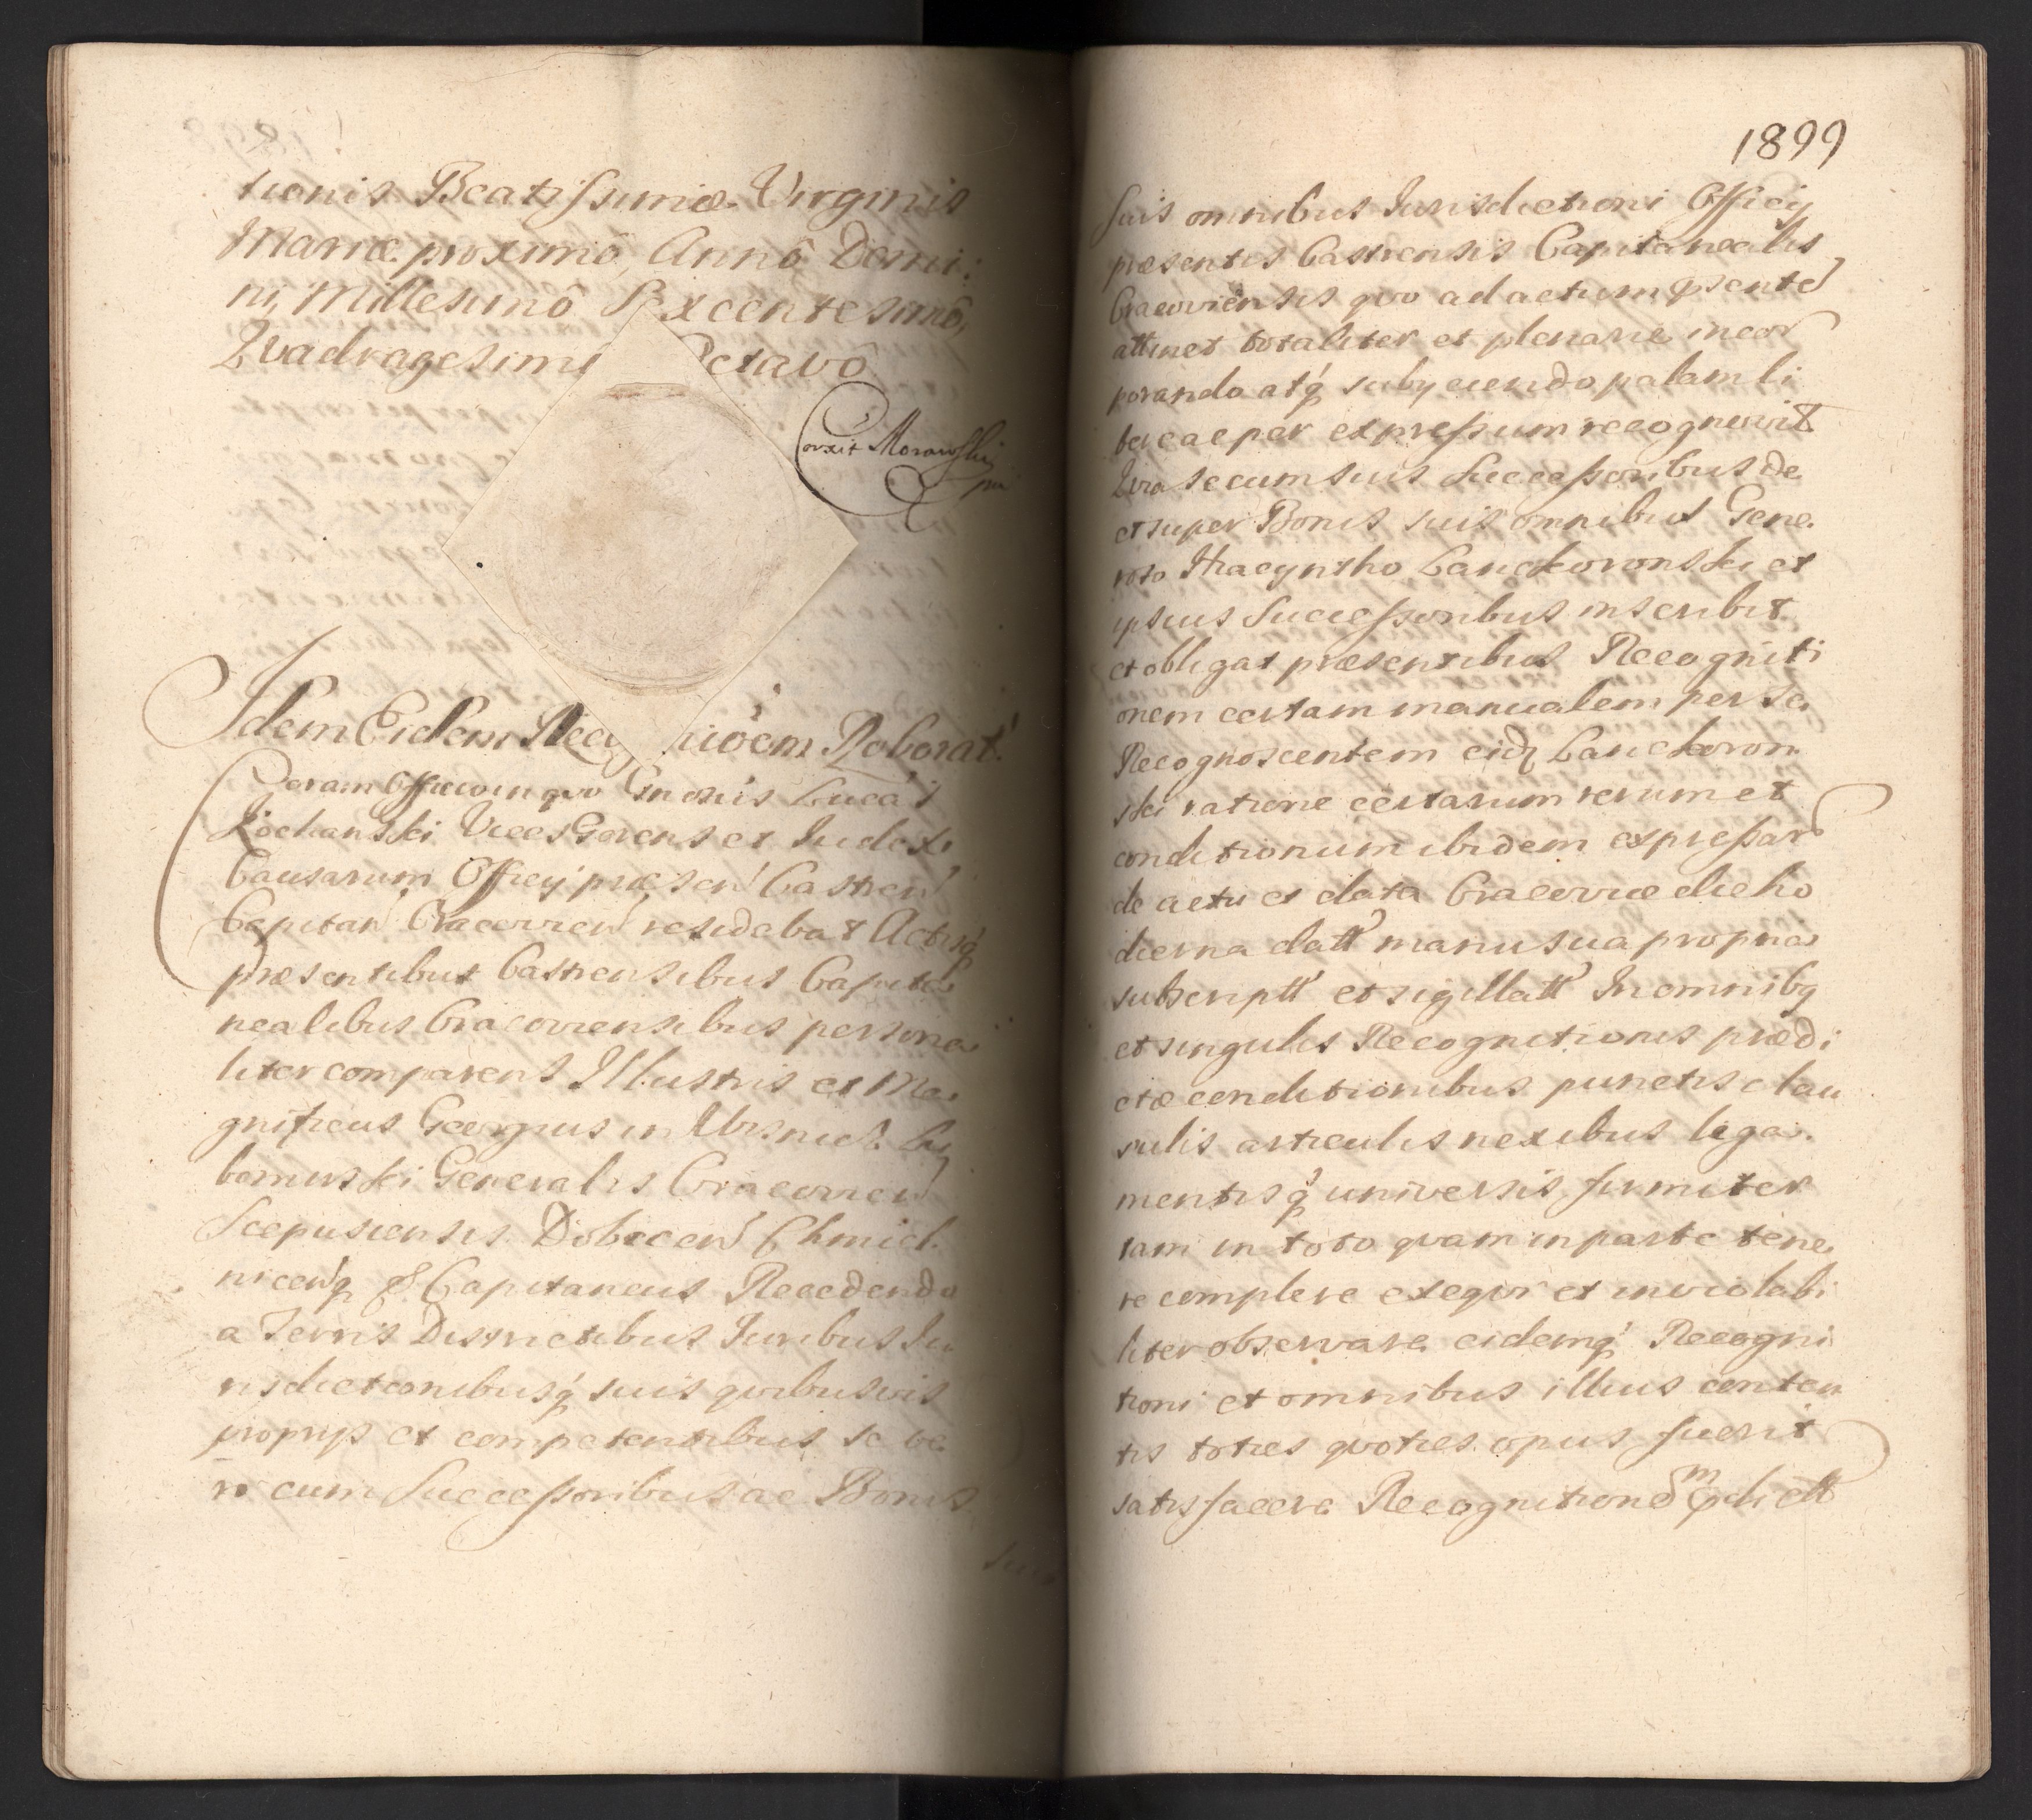 tionis Beatissimæ Virginis
Mariæ proximô, Annô Domi:
ni, Millesimô Sexcentesimô,
Quadragesimo Octavô
Corexit Morawski
mp
Idem Eidem Recog tioem Roborat.
Coram Officio in quo Gnosus Lucas
Kochanski Vices Gerens et Iudex
Causarum Officij præsen Castren
Capitan Cracovien residebat Actisq
præsentibus Castrensibus Capita
nealibus Cracoviensibus persona
liter comparens Illustris et Ma
gnificus Georgius in Wisnicz Lu
bomirski Generalis Cracovien
Scepusiensis Dobecen Chmiel
nicenq & Capitaneus Recedendo
a Terris Districtibus Iuribus Iu
risdictionibusq suis quibusvis
proprijs et competentibus se ve
ro cum Successoribus ac Bonis
suis
1899
suis omnibus Iurisdictioni Officij
præsentis Castrensis Capitanealis
Cracoviensis quo ad actum psente
attinet totaliter et plenarie incor
porando atq subijciendo palam li
bere ac per expressum recognovit
Quia se cum suis Successoribus de
et super Bonis suis omnibus Gene
roso Hyacyntho Lanckoronski et
ipsius Successoribus inscribit
et obligat præsentibus Recogniti
onem certam manualem per se
Recognoscentem eidq Lanckoron
ski ratione certarum rerum et
conditionum ibidem expressar
de actu et data Cracoviæ die ho
dierna datt manu sua propria
subscriptt et sigillatt In omnibq
et singulis Recognitionis prædi
ctæ conditionibus punctis clau
sulis articulis nexibus liga
mentisq universis firmiter
tam in toto quam in parte tene
re complere exequi et inviolabi
liter observare eidemq Recogni
tioni et omnibus illius conten
tis toties quoties opus fuerit
satisfacere Recognitionem pdictt